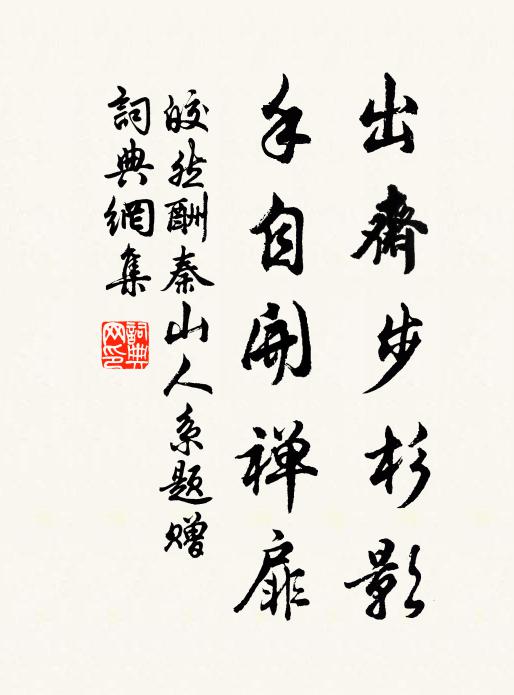 出齋步杉影
手自開禅扉
皎然酬秦山人系題贈
詞典網集
詞典網印